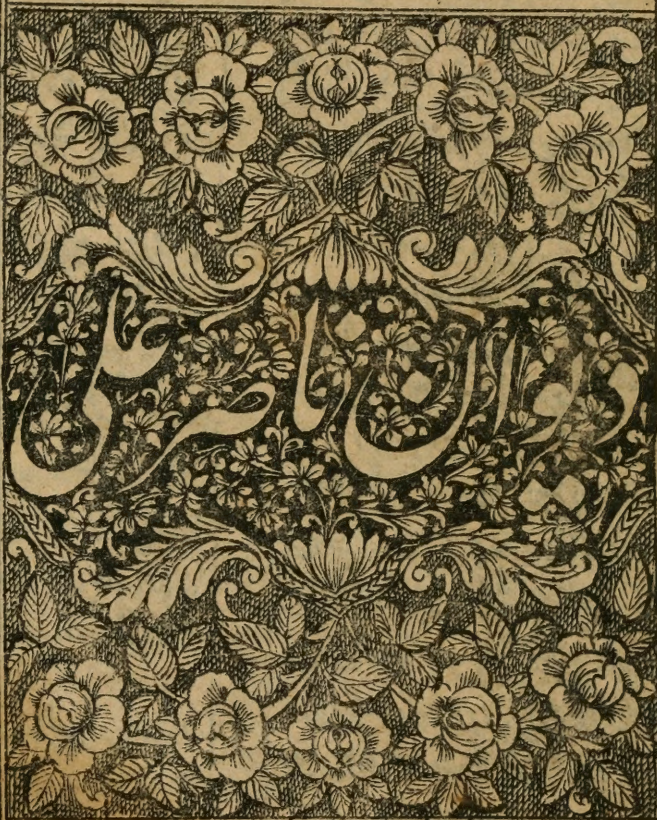 دیوان ناصر علی